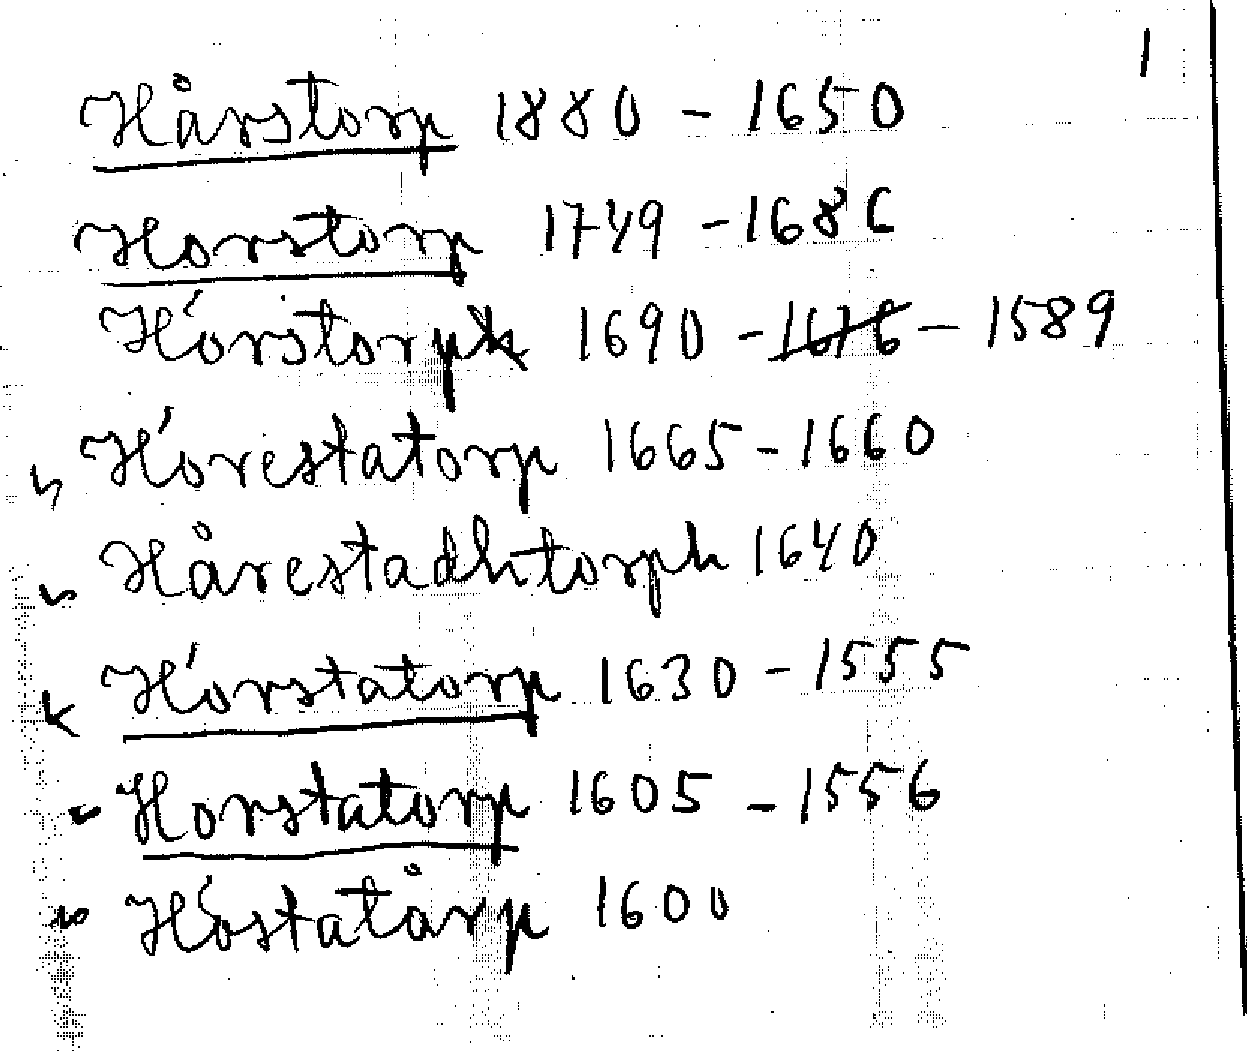 1
Hårstorp 1880 - 1650
Horstorp 1749 - 1686
Hórstorp 1690 - 1676 - 1589
Hórestatorp 1665 - 1660
Hårestadhtorph 1640
Hórstatorp 1630 - 1555
Horstatorp 1605 - 1556
Hóstatårp 1600